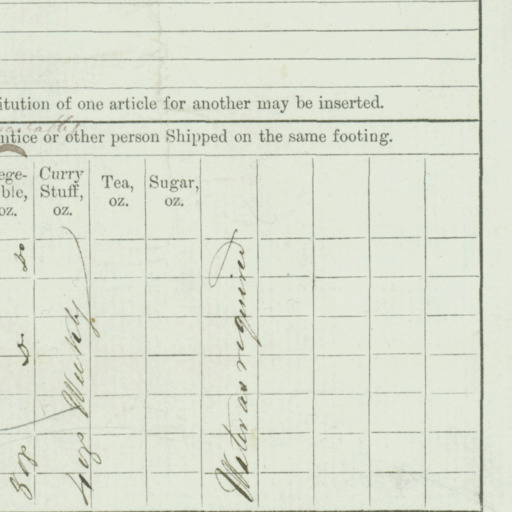 itution of one article for another may be inserted.
ntice or other person Shipped on the same footing.
ege-
ble,
oz.
Curry
Stuff,
oz.
Tea,
oz.
Sugar,
oz.
3 oz
4 oz Weekly
Water as required